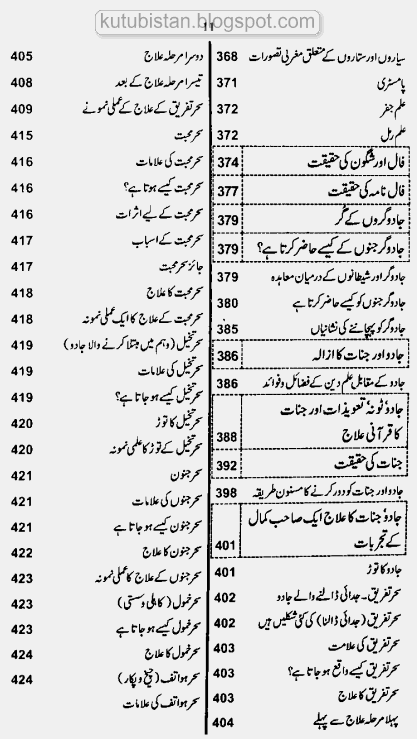 kutubistan.blogspot.com
11
سیاروں اور ستاروں کے متعلق مغربی تصورات 368
پامسٹری 371
علم جفر 372
علم رمل 372
فال اور شگون کی حقیقت 374
فال نامہ کی حقیقت 377
جادوگروں کے گر 379
جادوگر جنوں کے کیسے حاضر کرتا ہے؟ 379
جادوگر اور شیطانوں کے درمیان معاہدہ 379
جادوگر جنوں کو کیسے حاضر کرتا ہے 380
جادوگر کو پہچاننے کی نشانیاں 385
جادو اور جنات کا ازالہ 386
جادو کے مقابل علم دین کے فضائل و فوائد 386
جادو' ٹونہ' تعویذات اور جنات
کا قرآنی علاج 388
جنات کی حقیقت 392
جادو اور جنات کو دور کرنے کا مسنون طریقہ 398
جادو' جنات کا علاج ایک صاحب کمال
کے تجربات 401
جادو کا توڑ 401
سحر تفریق۔ جدائی ڈالنے والے جادو 402
سحر تفریق (جدائی ڈالنا) کی کئی شکلیں ہیں 402
سحر تفریق کی علامت 403
سحر تفریق کیسے واقع ہو جاتا ہے؟ 403
سحر تفریق کا علاج 403
پہلا مرحلہ علاج سے پہلے 404
دوسرا مرحلہ علاج 405
تیسرا مرحلہ علاج کے بعد 408
سحر تفریق کے علاج کے عملی نمونے 409
سحر محبت 415
سحر محبت کی علامات 416
سحر محبت کیسے ہوتا ہے؟ 416
سحر محبت کے لیے اثرات 416
سحر محبت کے اسباب 417
جائز سحر محبت 417
سحر محبت کا علاج 418
سحر محبت کے علاج کا ایک عملی نمونہ 418
سحر تخیل (وہم میں مبتلا کرنے والا جادو) 419
سحر تخیل کی علامات 419
سحر تخیل کیسے ہو جاتا ہے؟ 419
سحر تخیل کا توڑ 420
سحر تخیل کے توڑ کا علمی نمونہ 420
سحر جنون 421
سحر جنوں کی علامات 421
سحر جنون کیسے ہو جاتا ہے 421
سحر جنون کا علاج 422
سحر جنوں کے علاج کا عملی نمونہ 423
سحر خمول (کاہلی و سستی) 423
سحر خمول کیسے ہو جاتا ہے 423
سحر خمول کا علاج 424
سحر ہواتف (چیخ و پکار) 424
سحر ہواتف کی علامات